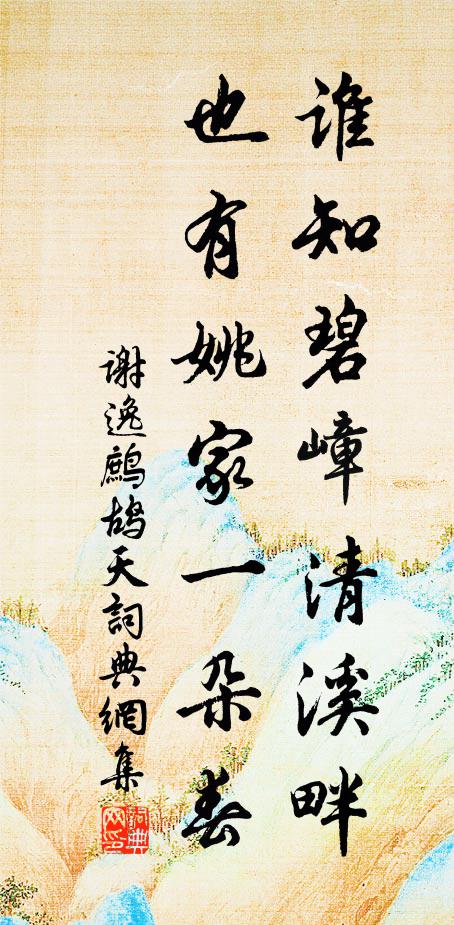 谁知碧嶂清溪畔
也有姚家一朵春
谢逸鹧鸪天詞典網集
詞典網印